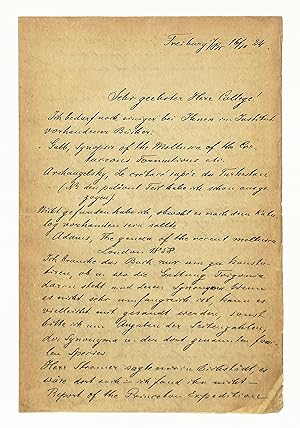 Freiburg i/Br. 16/1 24.
Sehr geehrter Herr College!
Ich bedarf noch einiger bei Ihnen im Institut
vorhandener Bücher:
Gabb, Synopsis of the Mollusca of the Cre-
taceous Formations etc.
Archangelsky, Le crétacé supér. du Turkestan
(Aus den polären Text habe ich schon ausge
zogen).
Nicht gefunden habe ich, obwohl es nach dem Kata-
log vorhanden sein sollte
Adams, The genera of the recent mollusca
London 1858
Ich brauche das Buch nur um zu konsta-
tieren, ob u. wo die Gattung Trigonia
darin steht und deren Synonyma. Wenn
es nicht sehr umfangreich ist, kann es
vielleicht mit gesandt werden, sonst
bitte ich um Angaben der Seitenzahlen,
der Synonyma u. der dort genannten
Species.
Herr Stromer sagte mir in
wäre dort auch – ich fand ihn nicht –
Report of the Princeton Expeditions